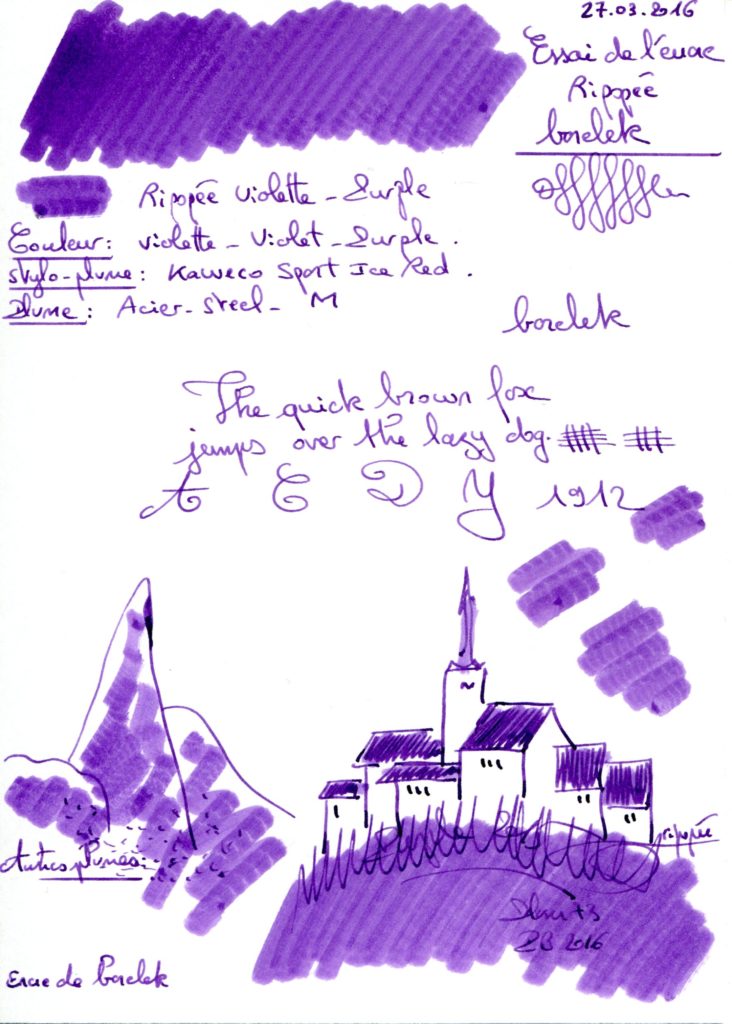 27.03.2016
Essai de l'encre
Ripopée
borelek
Ripopée Violette - Purple
Couleur: violette - Violet - Purple.
Stylo-plume: Kaweco Sport Ice Red.
Plume: Acier - Steel - M
borelek
The quick brown fox
jumps over the lazy dog.
A E D Y 1912
ripopée
Autres plumes:
2016
Encre de borelek